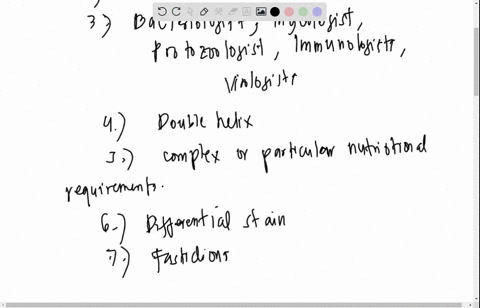 3.) Bacteriologist, Mycologist,
Protozoologist, Immunologists,
Virologists
4.) Double helix
5.) complex or particular nutritional
requirements.
6.) Differential stain
7.) Fastidious